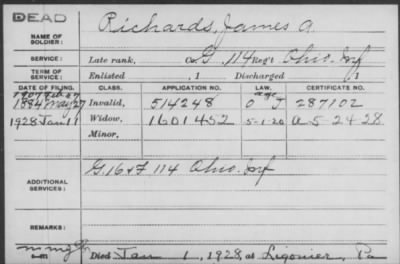 DEAD
Richards, James A.
NAME OF SOLDIER:
SERVICE: Late rank, Co. G, 114 Reg't Ohio Inf
TERM OF SERVICE: Enlisted , 1 Discharged , 1
DATE OF FILING. CLASS. APPLICATION NO. LAW. CERTIFICATE NO.
1907 Feb 27 age
1884 May 27 Invalid, 514248 O J 287102
1928 Jan 11 Widow, 1601452 5-1-20 A 5 24 28
Minor,
G, 16 & F, 114 Ohio Inf
ADDITIONAL SERVICES:
REMARKS:
Died Jan 1, 1928, at Ligonier, Pa